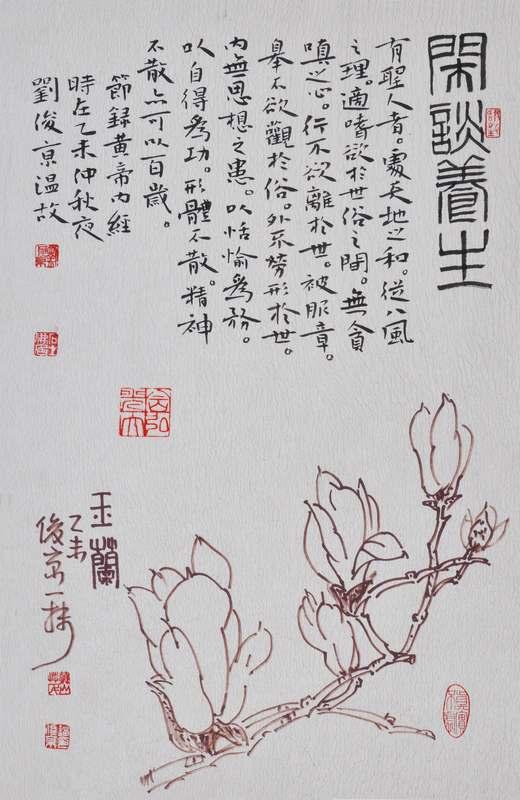 閑談養生
有聖人者。處天地之和。從八風
之理。適嗜欲於世俗之間。無貪
嗔之心。行不欲離於世。被服章。
舉不欲觀於俗。外不勞形於世。
內無思想之患。以恬愉爲務。
以自得爲功。形體不散。精神
不散亦可以百歲。
節録黃帝內經
時在乙未仲秋夜
劉俊京溫故
玉蘭
乙未
俊京一揮